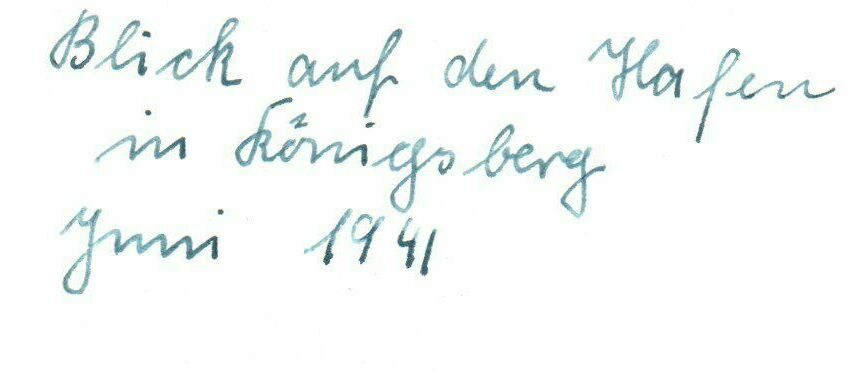 Blick auf den Hafen
in Königsberg
Juni 1941